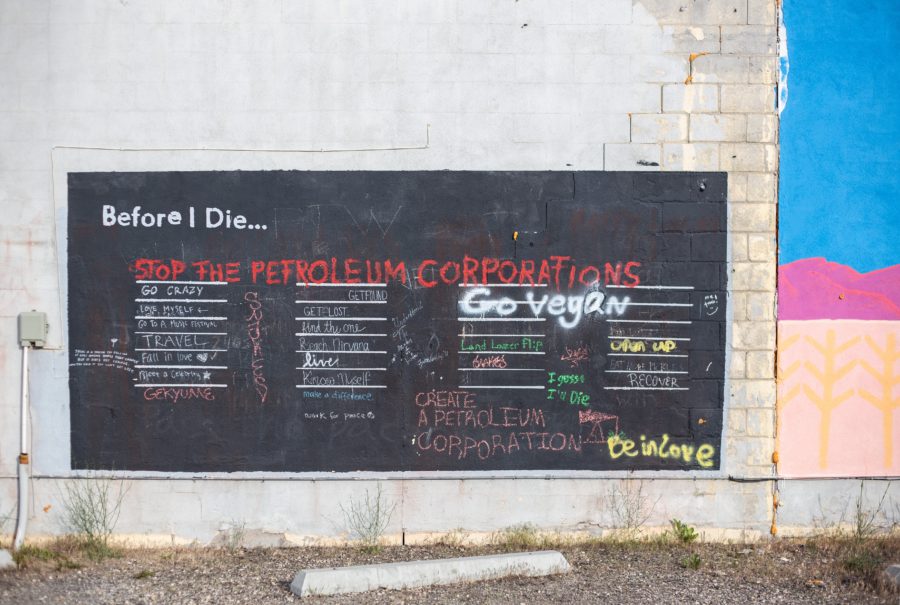 Before I Die...
STOP THE PETROLEUM CORPORATIONS
GO CRAZY
LOVE MYSELF
GO TO A MUSIC FESTIVAL
TRAVEL
Fall in love
Meet a Celebrity
GEKYUME
GET FOUND
GET LOST.
find the one
Reach Nirvana
live
Know Myself
make a difference
work for peace
Go Vegan
Land Lower Flip
OPEN UP
RECOVER
I gesse
I'll Die
CREATE
A PETROLEUM
CORPORATION
Be in Love